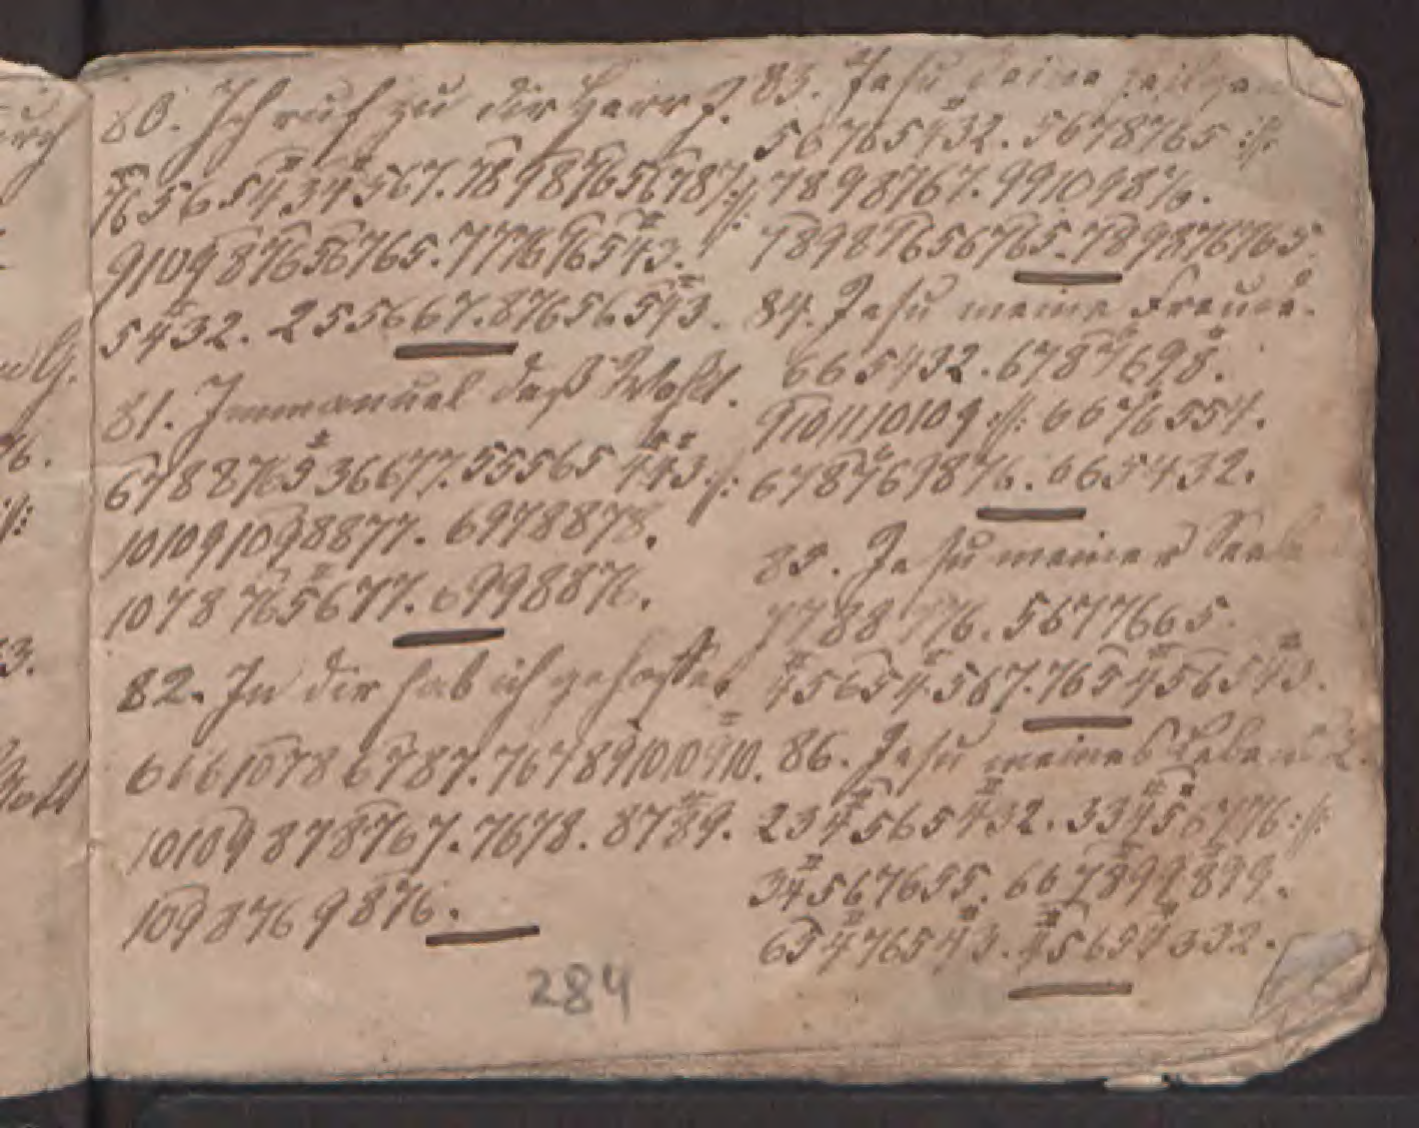 80. Ich ruf zu dir Herr J.
765656543434567.78987656787 :/:
910987656765.77767 6543.
5432. 2556667.87656543.
81. Immanuel deß
678876536677.55565443. :/:
101091098877. 6978878.
1078765677. 6998876.
82. In dir hab ich gehoffet
666107867 87.767891010910.
10109878767.7678. 8789.
10987 69876.
83. Jesu deine
56765432. 5678765 :/:
7898767. 99109876.
789876567 65.789876765.
84. Jesu meine Freud.
665432. 6787698.
9101110109 :/: 6676554.
67876 9876. 665432.
85. Jesu meiner Seel
7788776. 56777665.
4565 4.567.765456543.
86. Jesu meines Leben
234565432. 33456776 :/:
34567655. 667899899.
65476543. 45654332.
284